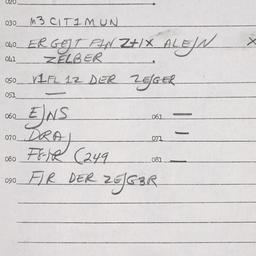 020
030 M3 CITIMUN
040 ERGEJT FAN Z+IX ALEJN X
041 ZELBER
050 VIFL 12 DER ZEJGER
051 —
060 EJNS 061 —
070 DRAJ 071 —
080 (249 081 —
090 FIR DER ZEJG3R